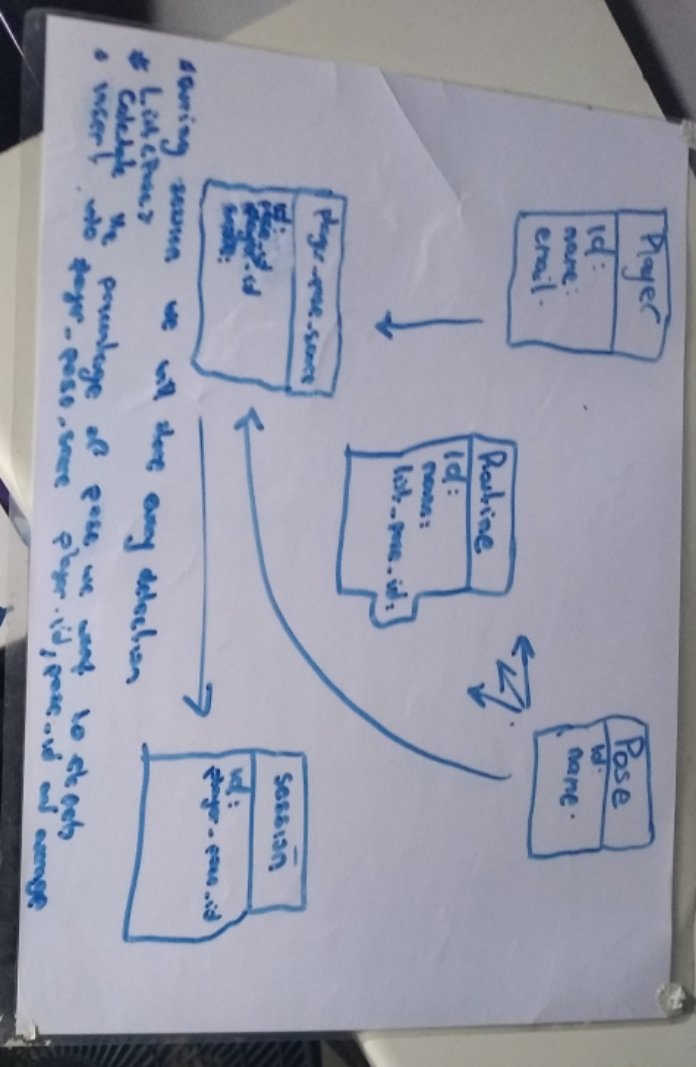 Player
id:
name:
email.
Pose
id:
name.
Routine
id:
name:
list_pose_id:
player_pose_source
id:
pose_id
player_id
session
id:
player_pose_id
during session we will store every detection
List<Pose>
calculate the percentage of pose we want to
insert into player_pose_source player_id, pose_id and average